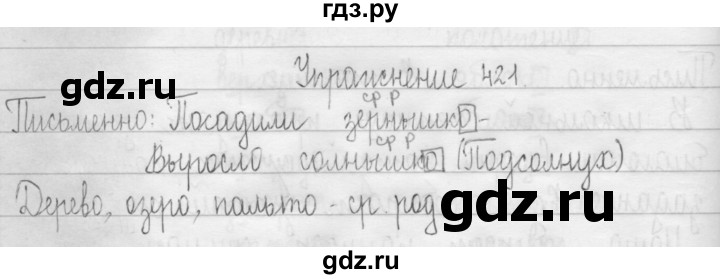 гдз.ру
Упражнение 421.
ср р
Письменно: Посадили зёрнышко -
ср р
Выросло солнышко (Подсолнух)
Дерево, озеро, пальто - ср. род
gdz.ru